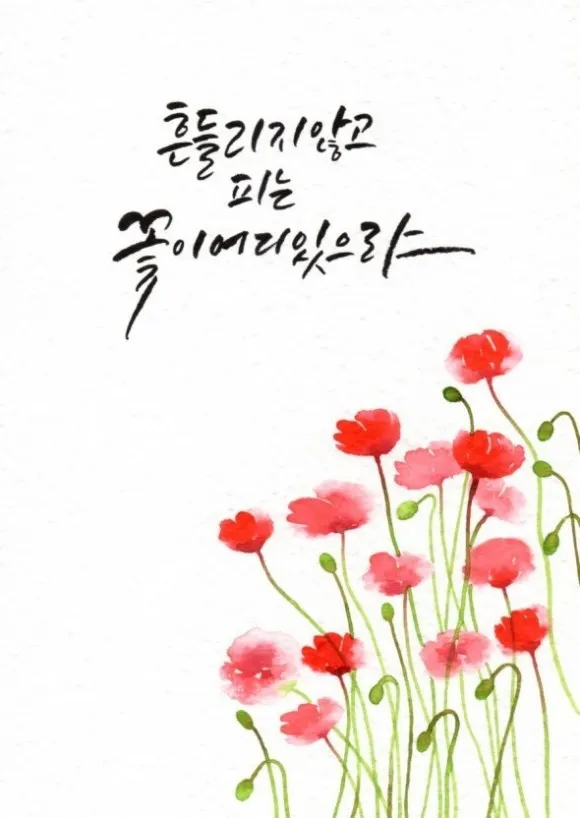 흔들리지않고
피는
꽃이어디있으랴